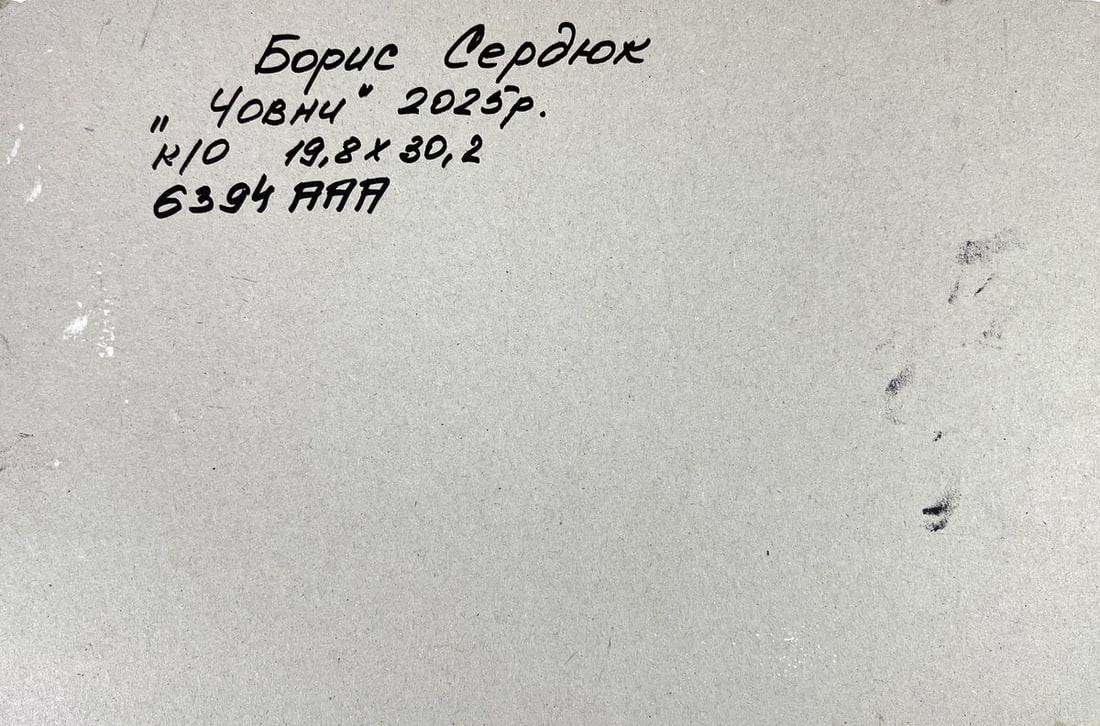 Борис Сердюк
„ Човни" 2025р.
к/о 19,8 х 30,2
6394 ААА